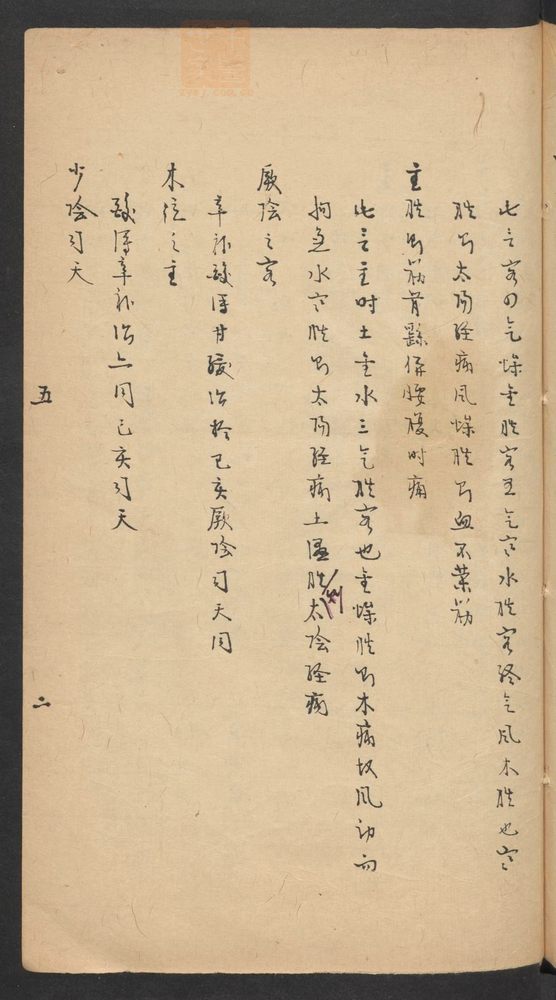 此言客四气燥金胜客五气寒水胜客终气风木胜也寒
胜则太阳经痛风燥胜则血不荣筋
主胜则筋骨繇併腰腹时痛
此言主时土金水三气胜客也金燥胜则木痛故风动而
拘急水寒胜则太阳经痛土湿胜则太阴经痛
厥阴之客
辛补酸泻甘缓治于巳亥厥阴司天同
木位之主
酸泻辛补治上同巳亥司天
少阴司天
五
二